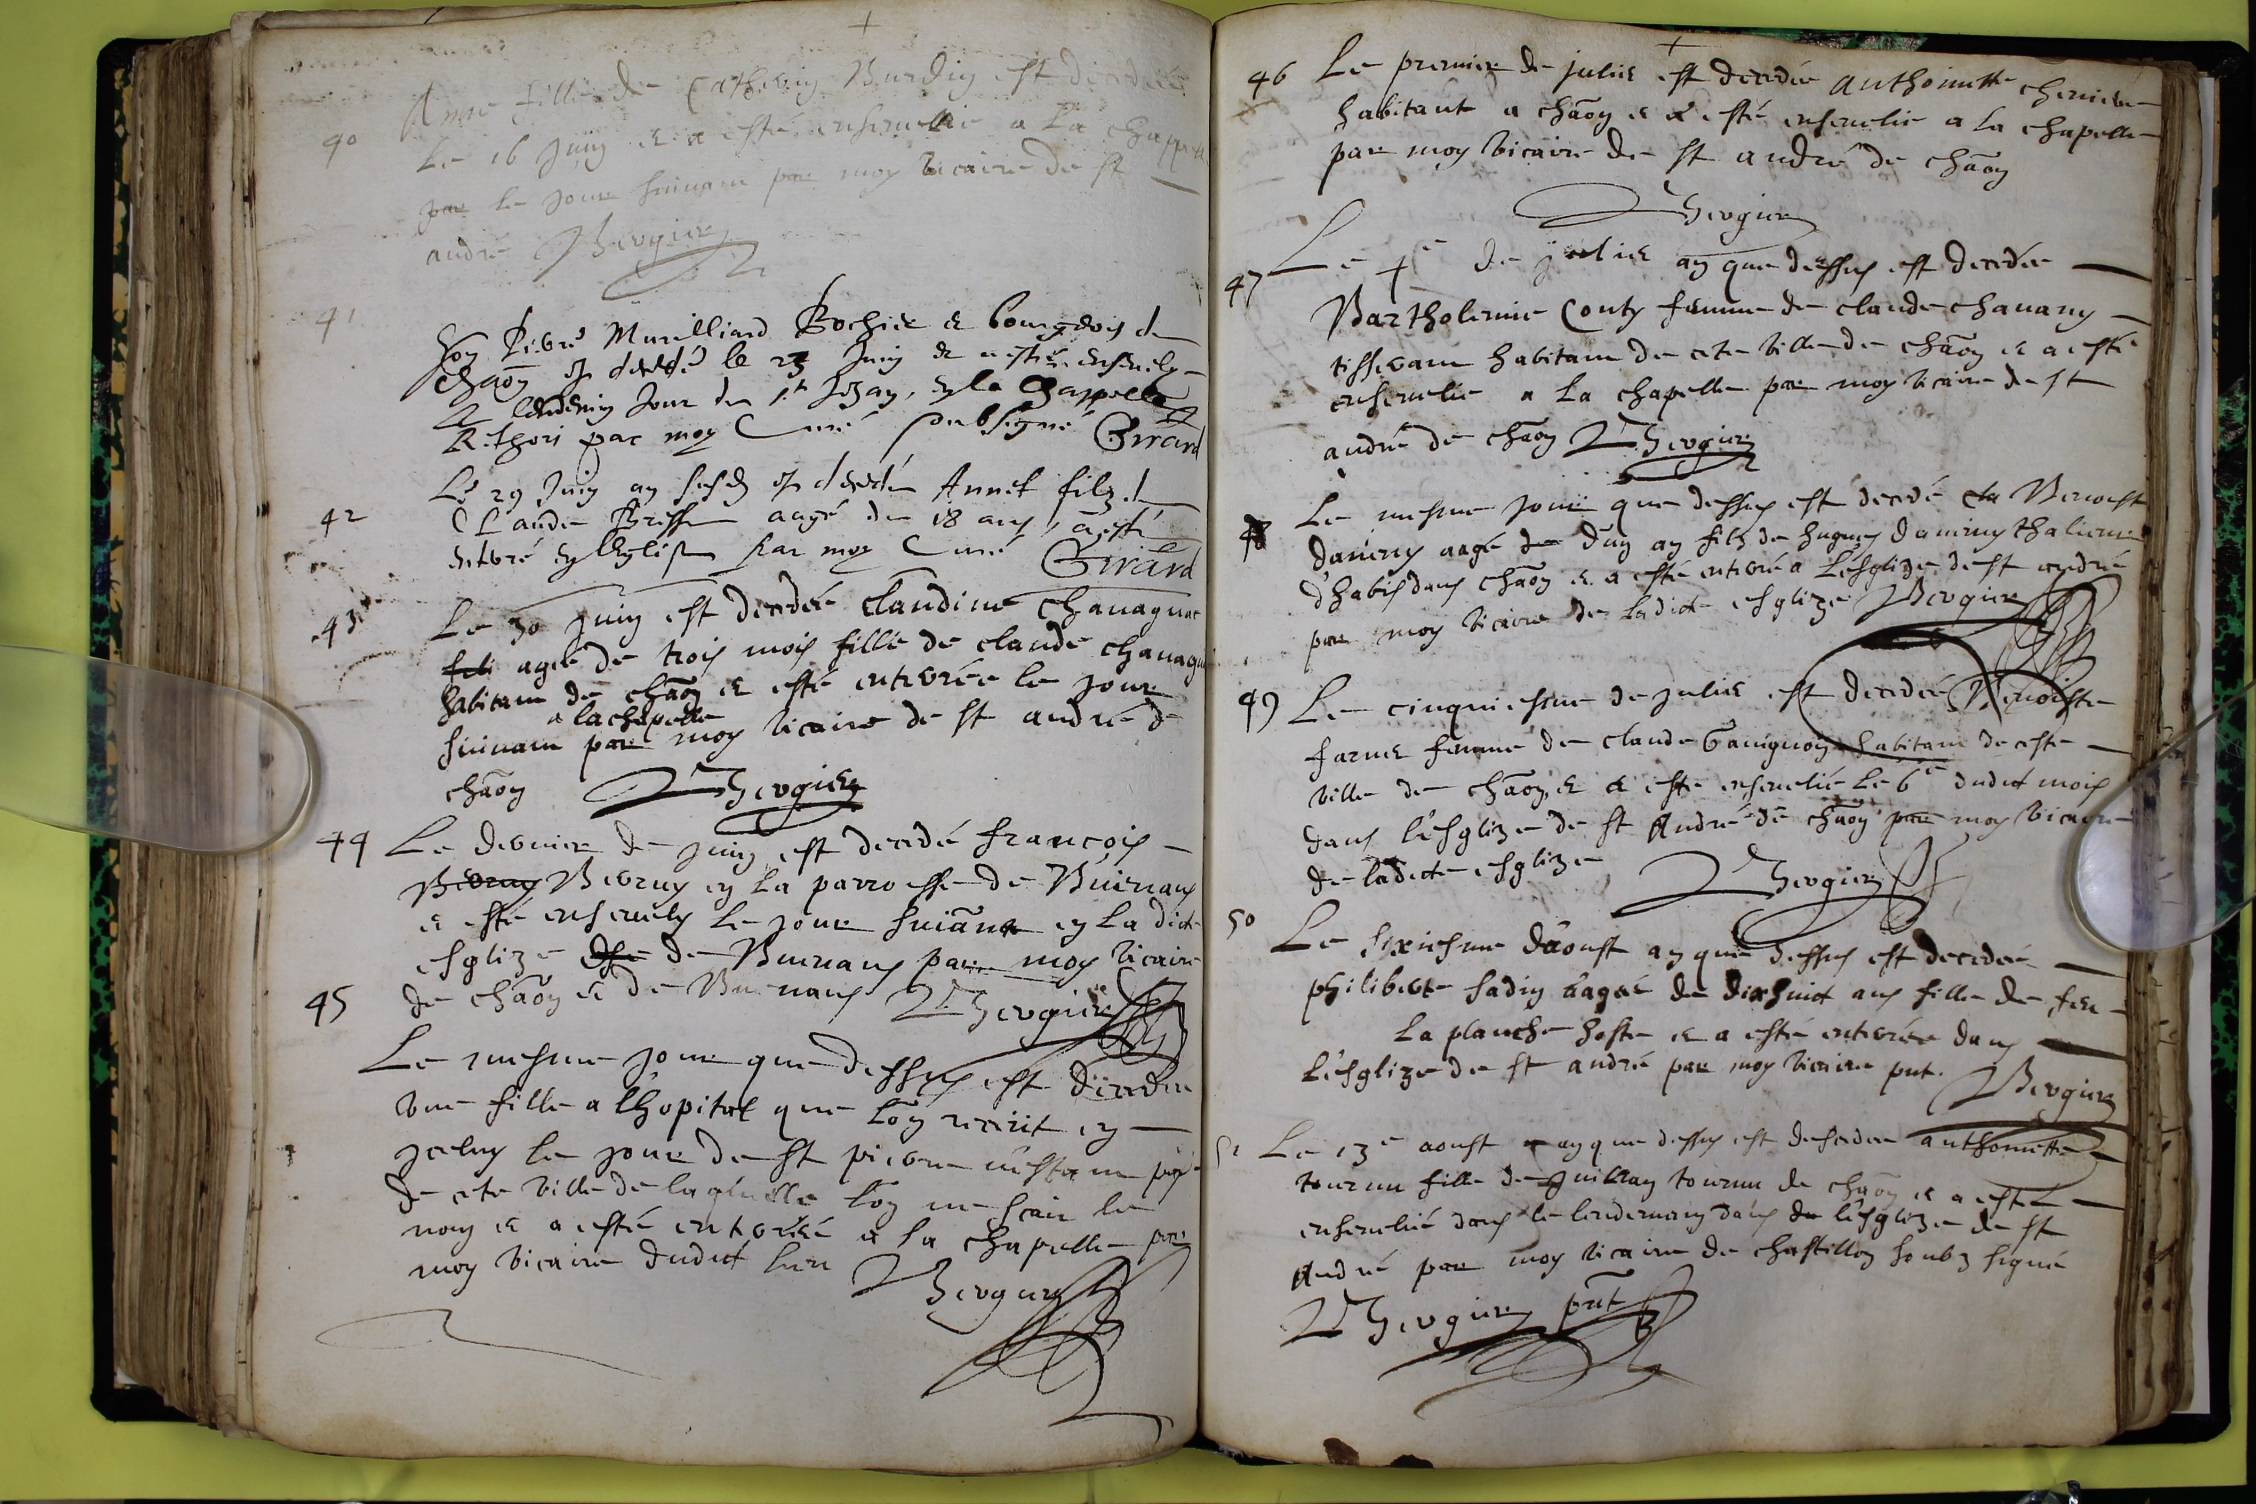 40 Anne fille de Catherin Burdin est decedée
le 16 Juin & a esté ensevelie a la chappelle
par le Jour suivant par moy vicaire de st
andré Bergier
41
hon Pierre Murilliard & bourgeois de
chaon est decedé le 23 Juin & a esté ensevely
le lendemin Jour de St Jean, en la chappelle
par moy Curé soubsigné Girard
42 Le 29 Juin an susd est decedé Annet filz de
Claude aagé de 18 ans, a esté
enterré en leglise par moy Curé Girard
43 Le 30 Juin est decedée Claudine Chanagnat
agée de trois mois fille de claude chanagnat
habitant de chaon & esté enterrée le jour
a la chapelle
suivant par moy vicaire de st andré de
chaon Bergier
44 Le dernier de juin est decedé françois
Berruy Berruy en la parroesse de Buenans
& esté ensevely le jour suivant en la dicte
esglize de Buenans par moy vicaire
de chaon & de Buenans Bergier
45
Le mesme jour que dessus est decedée
une fille a lhopital que lon receut en
jceluy le jour de st pierre n'estant pas
de cete ville de laquelle lon ne scait le
nom & a esté enterrée a la chapelle par
moy vicaire dudict lieu Bergier
46 Le premier de juliet est decedée anthoinette
habitant a chaon & a esté ensevelie a la chapelle
par moy vicaire de st andré de chaon
Bergier
47 Le 4e de juliet an que dessus est decedée
Bartholemie Conty femme de claude chanany
tisserant habitant de cete ville de chaon & a esté
ensevelie a la chapelle par moy vicaire de st
andré de chaon Bergier
48 Le mesme jour que dessus est decedé Benoist
daniny aagé d'un an filz de hugues daniny
chaon & a esté enterré a l'esglize de st andré
par moy vicaire de ladicte esglize Bergier
49 Le cinquiesme de juliet est decedée Benoiste
farnier femme de claude habitant de ceste
ville de chaon & a esté ensevelie le 6e dudict mois
dans l'esglize de st André de chaon par moy vicaire
de ladicte esglize Bergier
50 Le sixiesme d'aoust an que dessus est decedée
philiberte sadin aagée de dixhuict ans fille de feu
la planche hoste & a esté enterrée dans
l'esglize de st andré par moy vicaire pnt. Bergier
51 Le 13e aoust an que dessus est decedée anthoinette
tournu fille de Guillay tournu de chaon & a esté
ensevelie dans le lendemang dans l'esglize de st
André par moy vicaire de chastillon soubz signé
Bergier pnt